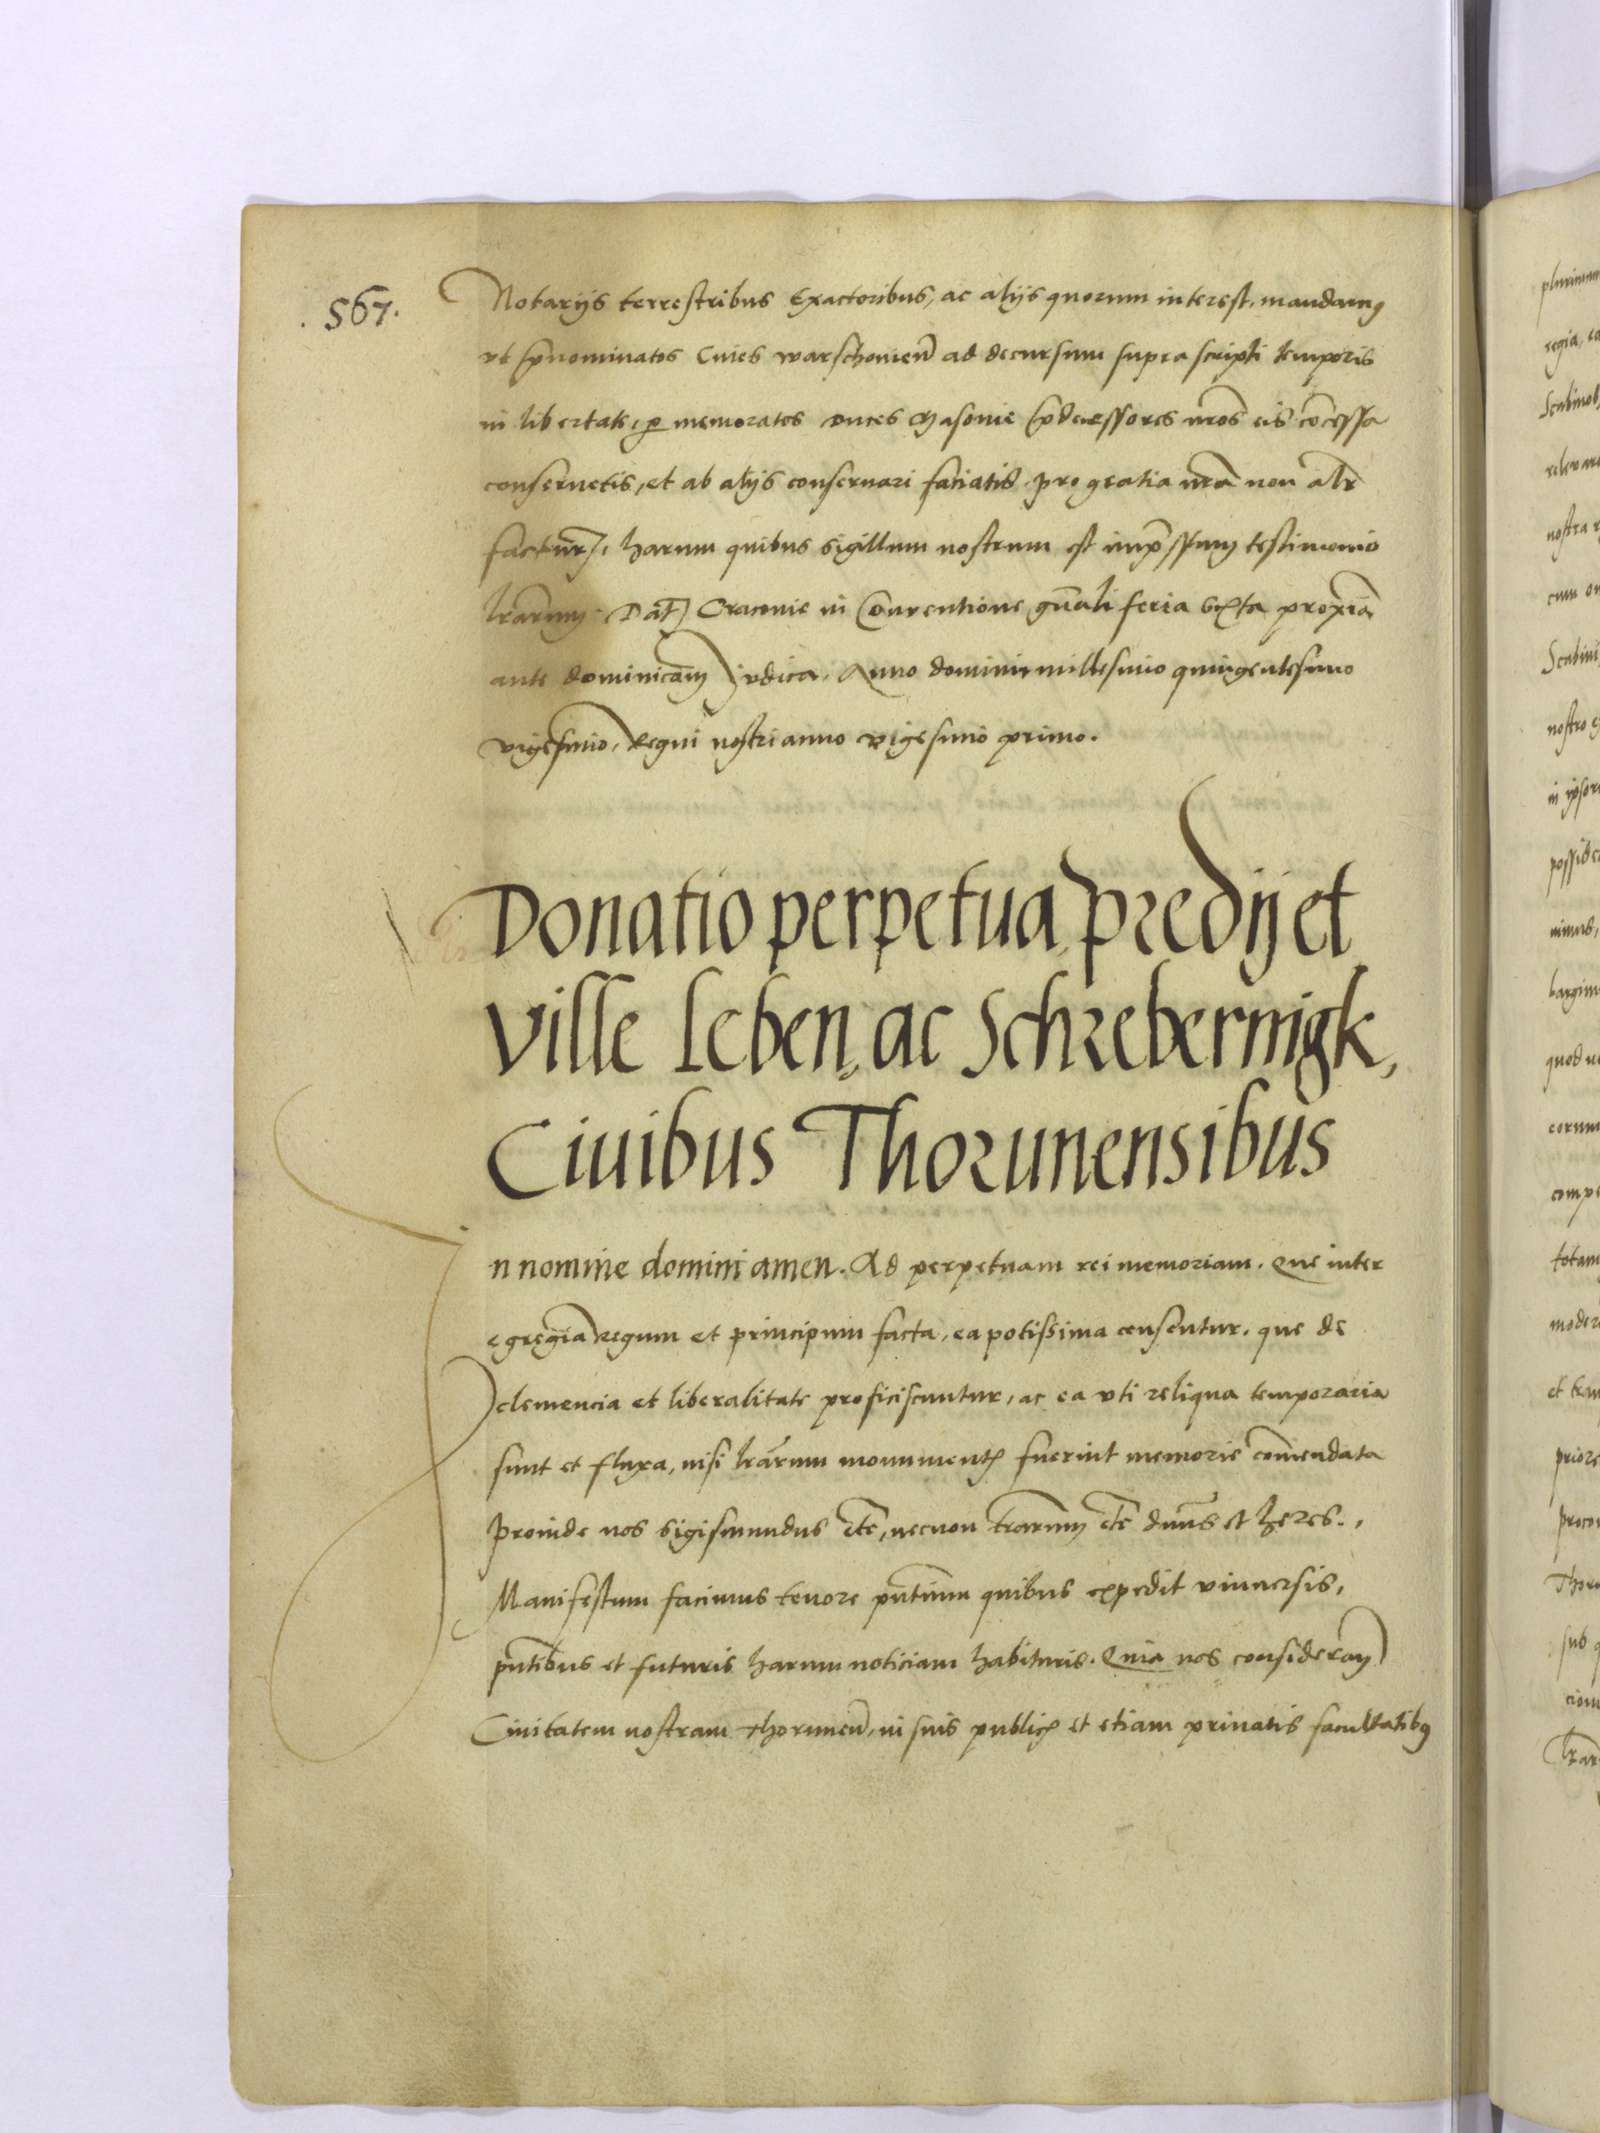 . 567.
Notarijs terrestribus Exactoribus, ac alijs quorum interest, mandamꝰ
vt p̄nominatos Ciues warschouien̄ ad decursum supra scripti temporis
in libertate, ꝑ memoratos duces Masouie p̄decessores nr̄os eis cōcessa
conseruetis, et ab alijs conseruari faciatis pro gratia nr̄a non alr̄
factur̄, harum quibus sigillum nostrum est imp̄ssum testimonio
lr̄arum. Dat̄ Cracouie in Conuentione gn̄ali feria sexta proxīa
ante dominicam Judica. Anno domini millesimo quingentesimo
vigesimo, Regni nostri anno vigesimo primo.
Donatio perpetua predij et
ville Leben, ac Schrebernigk,
Ciuibus Thorunensibus
n nomine domini amen. Ad perpetuam rei memoriam. Que inter
egregia regum et principum facta, ea potissima censentur, que de
clemencia et liberalitate proficiscuntur, ac ea vti reliqua temporaria
sunt et fluxa, nisi lr̄arum monumentꝭ fuerint memorie com̄endata
Proinde nos Sigismundus etc̄, necnon terrarum etc̄ dn̄us et heres.,
Manifestum facimus tenore pn̄tium quibus expedit vniuersis,
pn̄tibus et futuris harum noticiam habituris. Quia nos consideran̄
Ciuitatem nostram Thorunen̄, in suis publicꝭ et etiam priuatis facultatibꝰ